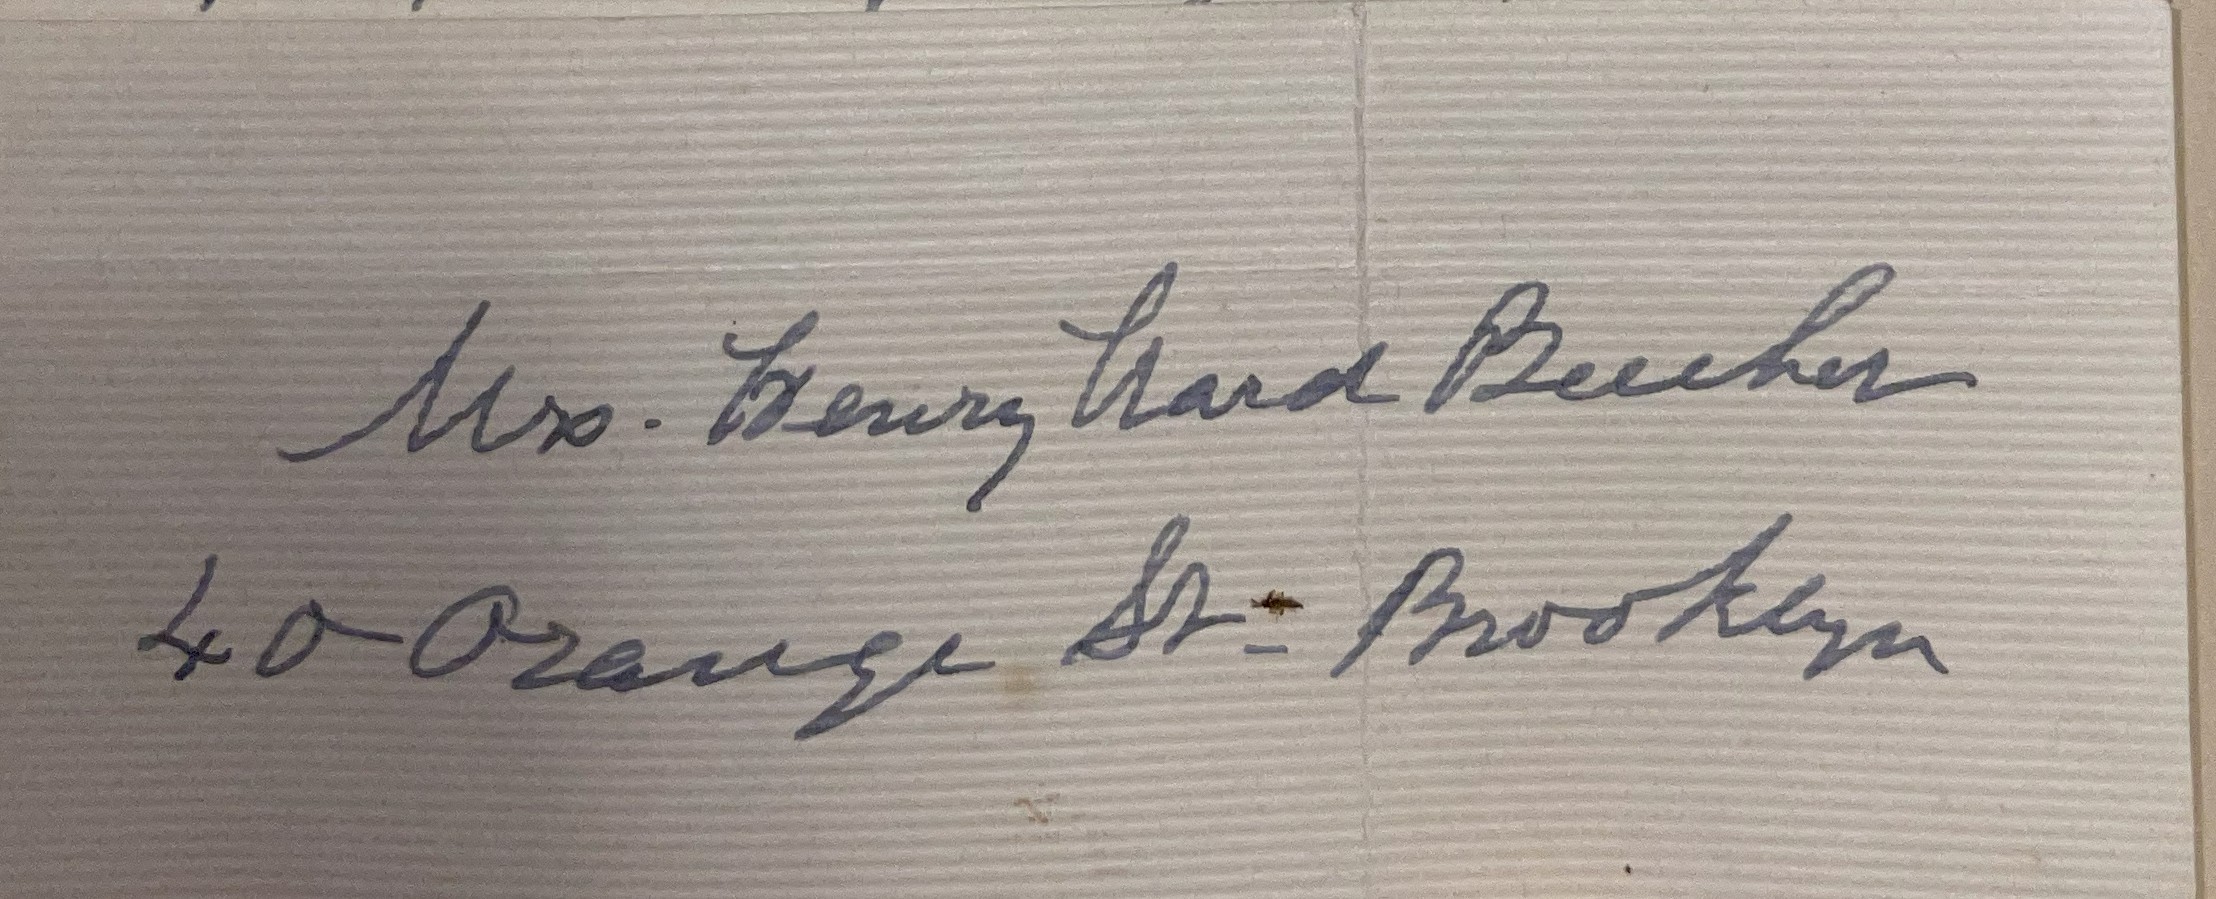 Mrs. Henry Ward Beecher
40 Orange St - Brooklyn